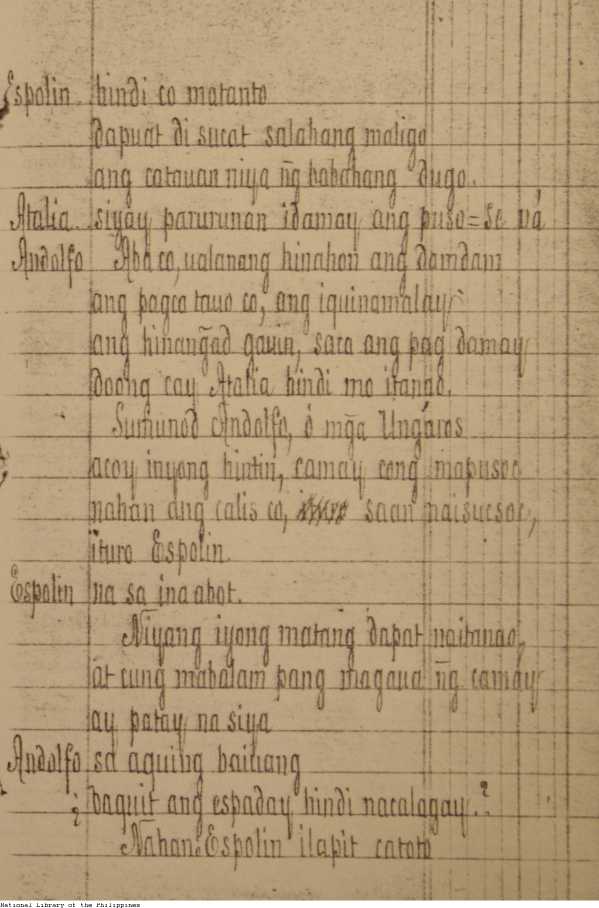 Espolin. hindi co matanto
dapuat di sucat salahang maligo
ang catauan niya ñg babahang dugo.
Atalia. siyay parurunan idamay ang puso = Se vá
Andolfo Aba co, ualanang hinahon ang damdam
ang pagca tauo co, ang iquinamalay
ang hinan̄gad gauin, saca ang pag damay
doong cay Atalia hindi mo itanao.
Sumunod Andolfo, ó mḡa Ungáros
acoy inyong hintin, camay cong mapusoc
nahan ang calis co, saan naisucsoc,
ituro Espolin.
Espolin na sa ina abot.
Niyang iyong matang dapat naitanao,
at cung mabalam pang magaua n̄g camáy
ay patay na siya
Andolfo sa aquing baiuang
¿ baquit ang espaday hindi nacalagay.?
Nahan: Espolin ilapit catoto
National Library of the Philippines